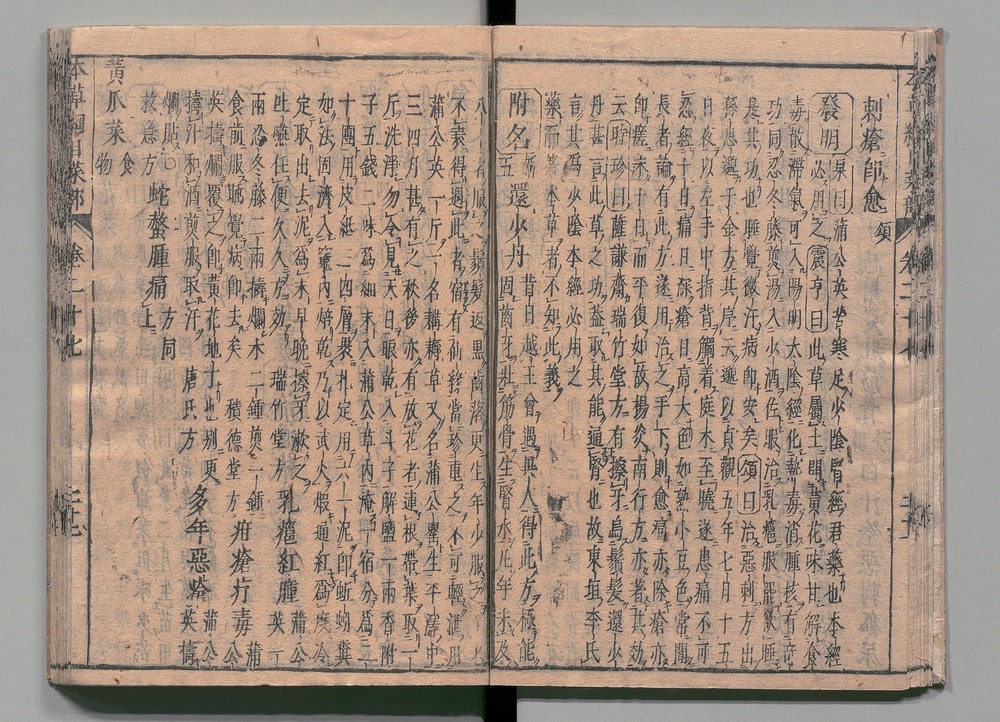 刺瘡師愈頌
發明 杲曰蒲公英苦寒足少陰腎經君藥也本經
必用之震亨曰此草屬土開黃花味甘解食
毒散滯氣可入陽明太陰經化熱毒消腫核有奇
功同忍冬藤煎湯入少酒佐服治乳癰服罷欲睡
是其功也睡覺微汗病即安矣頌曰治惡刺方出
孫思邈千金方其序云邈以貞觀五年七月十五
日夜以左手中指背觸着庭木至曉遂患痛不可
忍經十日痛日深瘡日高大色如熟小豆色常聞
長者論有此方遂用治之手下則愈痛亦除瘡亦
即瘥未十日而平復如故楊炎南行方亦著其效
云時珍曰薩謙齋瑞竹堂方有擦牙烏鬚髮還少
丹甚言此草之功蓋取其能通腎也故東垣李氏
言其爲少陰本經必用之
藥而著本草者不知此義
附方 新五 還少丹 昔日越王曾遇異人得此方極能
固齒牙壯筋骨生腎水凡年未及
八 者服之鬚髮返黑齒落更生年少服之
不衰得遇此者宿有仙緣當珍重之不可輕泄用
蒲公英一斤一名耩耨草又名蒲公罌生平澤中
三四月甚有之秋後亦有放花者連根帶葉取一
斤洗淨勿令見天日晾乾入斗子解鹽一兩香附
子五錢二味爲細末入蒲公草內淹一宿分爲二
十團用皮紙三四層裹扎定用六一泥即蚯蚓糞
如法固濟入竈內焙乾乃以武火煅通紅爲度冷
定取出去泥爲末早晚擦牙漱之
吐嚥任便久久方效瑞竹堂方 乳癰紅腫 蒲公英一
兩忍冬藤二兩擣爛水二鍾煎一鍾
食前服睡覺病即去矣 積德堂方 疳瘡疔毒 蒲公
英擣爛覆之即黃花地丁也別更
擣汁和酒煎服取汗 唐氏方 多年惡瘡 蒲公英擣
爛貼○
救急方 蛇螫腫痛 方同上
黃瓜菜 食物